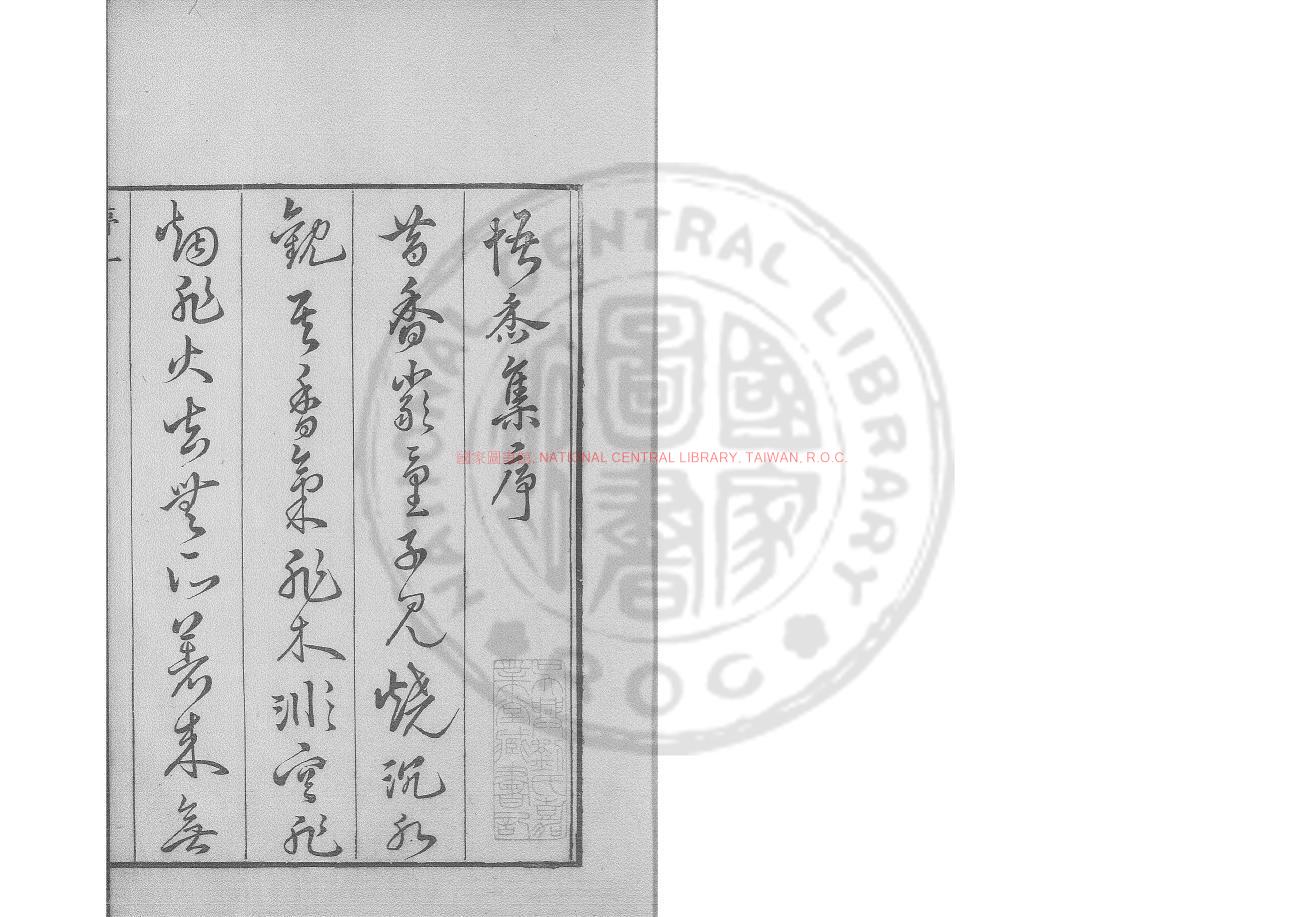 悟香集序
昔香嚴童子見燒沉水
觀其香氣非木非空非
烟非火去無所著來無
序 一
國家圖書館, NATIONAL CENTRAL LIBRARY, TAIWAN, R.O.C.
NATIONAL CENTRAL LIBRARY
R O C
國家圖書
吳興劉氏嘉
業堂藏書記